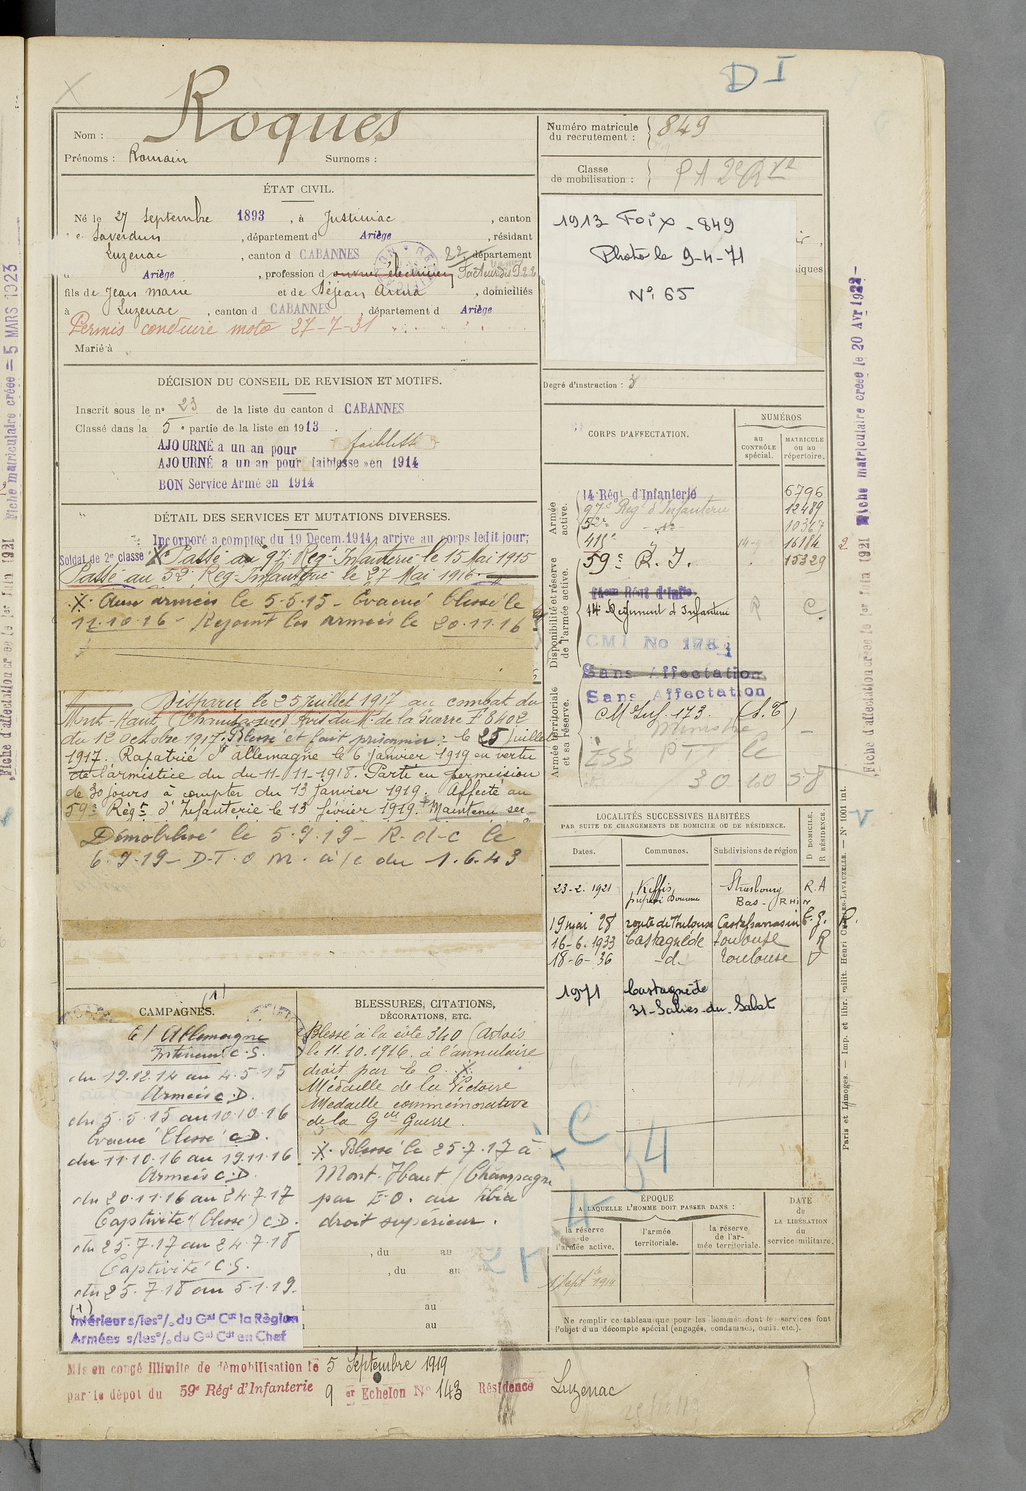 D I
Nom : Roques
Prénoms : Romain Surnoms :
Numéro matricule du recrutement : 849
Classe de mobilisation :
ÉTAT CIVIL.
Né le 27 Septembre 1893, à Justiniac, canton
Saverdun, département d Ariège, résidant
Luzenac, canton d CABANNES, département
Ariège, profession d ouvrier électricien
fils de Jean Marie et de Séjean Arcna, domiciliés
à Luzenac, canton d CABANNES, département d Ariège
Permis conduire moto 27-7-31
Marié à
1913 Foix - 849
Photo le 9-4-71
N° 65
Degré d'instruction : 3
DÉCISION DU CONSEIL DE REVISION ET MOTIFS.
Inscrit sous le n° 23 de la liste du canton d CABANNES
Classé dans la 5e partie de la liste en 1913.
AJOURNÉ a un an pour faiblesse
AJOURNÉ a un an pour faiblesse en 1914
BON Service Armé en 1914
DÉTAIL DES SERVICES ET MUTATIONS DIVERSES.
Incorporé a compter du 19 Decem. 1914, arrive au corps ledit jour;
Soldat de 2e classe X Passé au 97e Reg. Infanterie le 15 Mai 1915
Passé au 52e Reg. Infanterie le 27 Mai 1916.
X Aux armées le 5-5-15 - Evacué blessé le
11.10.16 - Rejoint les armées le 20.11.16
Disparu le 25 Juillet 1917 au combat du
Mont-Haut (Champagne) Avis du M. de la Guerre F 8402
du 12 Octobre 1917. Blessé et fait prisonnier le 25 Juillet
1917. Rapatrié d'Allemagne le 6 Janvier 1919 en vertu
de l'armistice du 11-11-1918. Parti en permission
de 30 jours à compter du 13 Janvier 1919. Affecté au
59e Régt d'Infanterie le 13 février 1919. Maintenu ser-
Démobilisé le 5.9.19 - R-d-C le
6.9.19 - D.T.O.M. à/c du 1.6.43
CORPS D'AFFECTATION.
NUMÉROS
AU CONTRÔLE spécial.
MATRICULE ou au répertoire.
Armée active.
14 Régt d'Infanterie 6796
97e Régt d'Infanterie 12489
52e -d°- 10367
411e 16184
59e R.I. 15329
Disponibilité et réserve de l'armée active.
14e Régiment d'Infanterie
CMI No 178
Sans Affectation
Sans Affectation
Armée territoriale et sa réserve.
ESS PTT le
30 10 58
LOCALITÉS SUCCESSIVES HABITÉES
PAR SUITE DE CHANGEMENTS DE DOMICILE OU DE RÉSIDENCE.
D DOMICILE. R RÉSIDENCE.
Dates. Communes. Subdivisions de région
23-2-1921 Kiffis Strasbourg R.A
Bas-Rhin
19 mai 28 route de Toulouse Castelsarrasin
16-6-1933 Castagnède Toulouse R
18-6-36 -d- Toulouse
1971 Castagnède
31-Salies-du-Salat
CAMPAGNES.
C/ Allemagne
Intérieur C.S.
du 19.12.14 au 4.5.15
Armées C.D.
du 5.5.15 au 10.10.16
Evacué blessé C.D.
du 11.10.16 au 19.11.16
Armées C.D.
du 20.11.16 au 24.7.17
Captivité (blessé) C.D.
du 25.7.17 au 24.7.18
Captivité C.S.
du 25.7.18 au 5.1.19.
(1)
Intérieur s/les o/ du Gal Ct la Région
Armées s/les o/ du Gal Ct en Chef
BLESSURES, CITATIONS, DÉCORATIONS, ETC.
Blessé à la cote 340 (Artois)
le 11.10.1916 à l'annulaire
droit par E.O. X.
Médaille de la Victoire
Médaille commémorative
de la Gde Guerre.
X. Blessé le 25.7.17 à
Mont-Haut (Champagne
par E.O. au tibia
droit supérieur.
, du au
, du au
au
au
C
34
ÉPOQUE
A LAQUELLE L'HOMME DOIT PASSER DANS :
la réserve de l'armée active.
l'armée territoriale.
la réserve de l'armée territoriale.
DATE de LA LIBÉRATION du service militaire.
Ne remplir ce tableau que pour les hommes dont les services font
l'objet d'un décompte spécial (engagés, condamnés, omis, etc.).
Mis en congé illimité de démobilisation le 5 Septembre 1919
par le dépôt du 59e Régt d'Infanterie 9 er Echelon N° 143 Résidence Luzenac
Fiche matriculaire créée le 20 Avr 1922
Fiche matriculaire créée = 5 MARS 1923
Fiche d'affectation créée le 1er Juin 1921
Fiche d'affectation créée le 1er Juin 1921
Paris et Limoges. — Imp. et libr. milit. Henri CHARLES-LAVAUZELLE. — N° 1001 int.